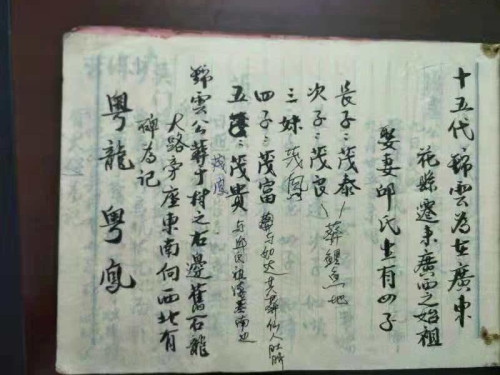 十五代錦雲為在廣東
花縣遷來廣西之始祖
娶妻邱氏生有四子
長子:茂泰
次子:茂良(葬鯉魚地
三妹 茂鳳
四子:茂富 葬与幼大共葬仙人肚臍
五 茂貴
錦雲公葬十村之右邊舊石龍
大路旁座東南向西北有
碑為記
粵龍 粵鳳